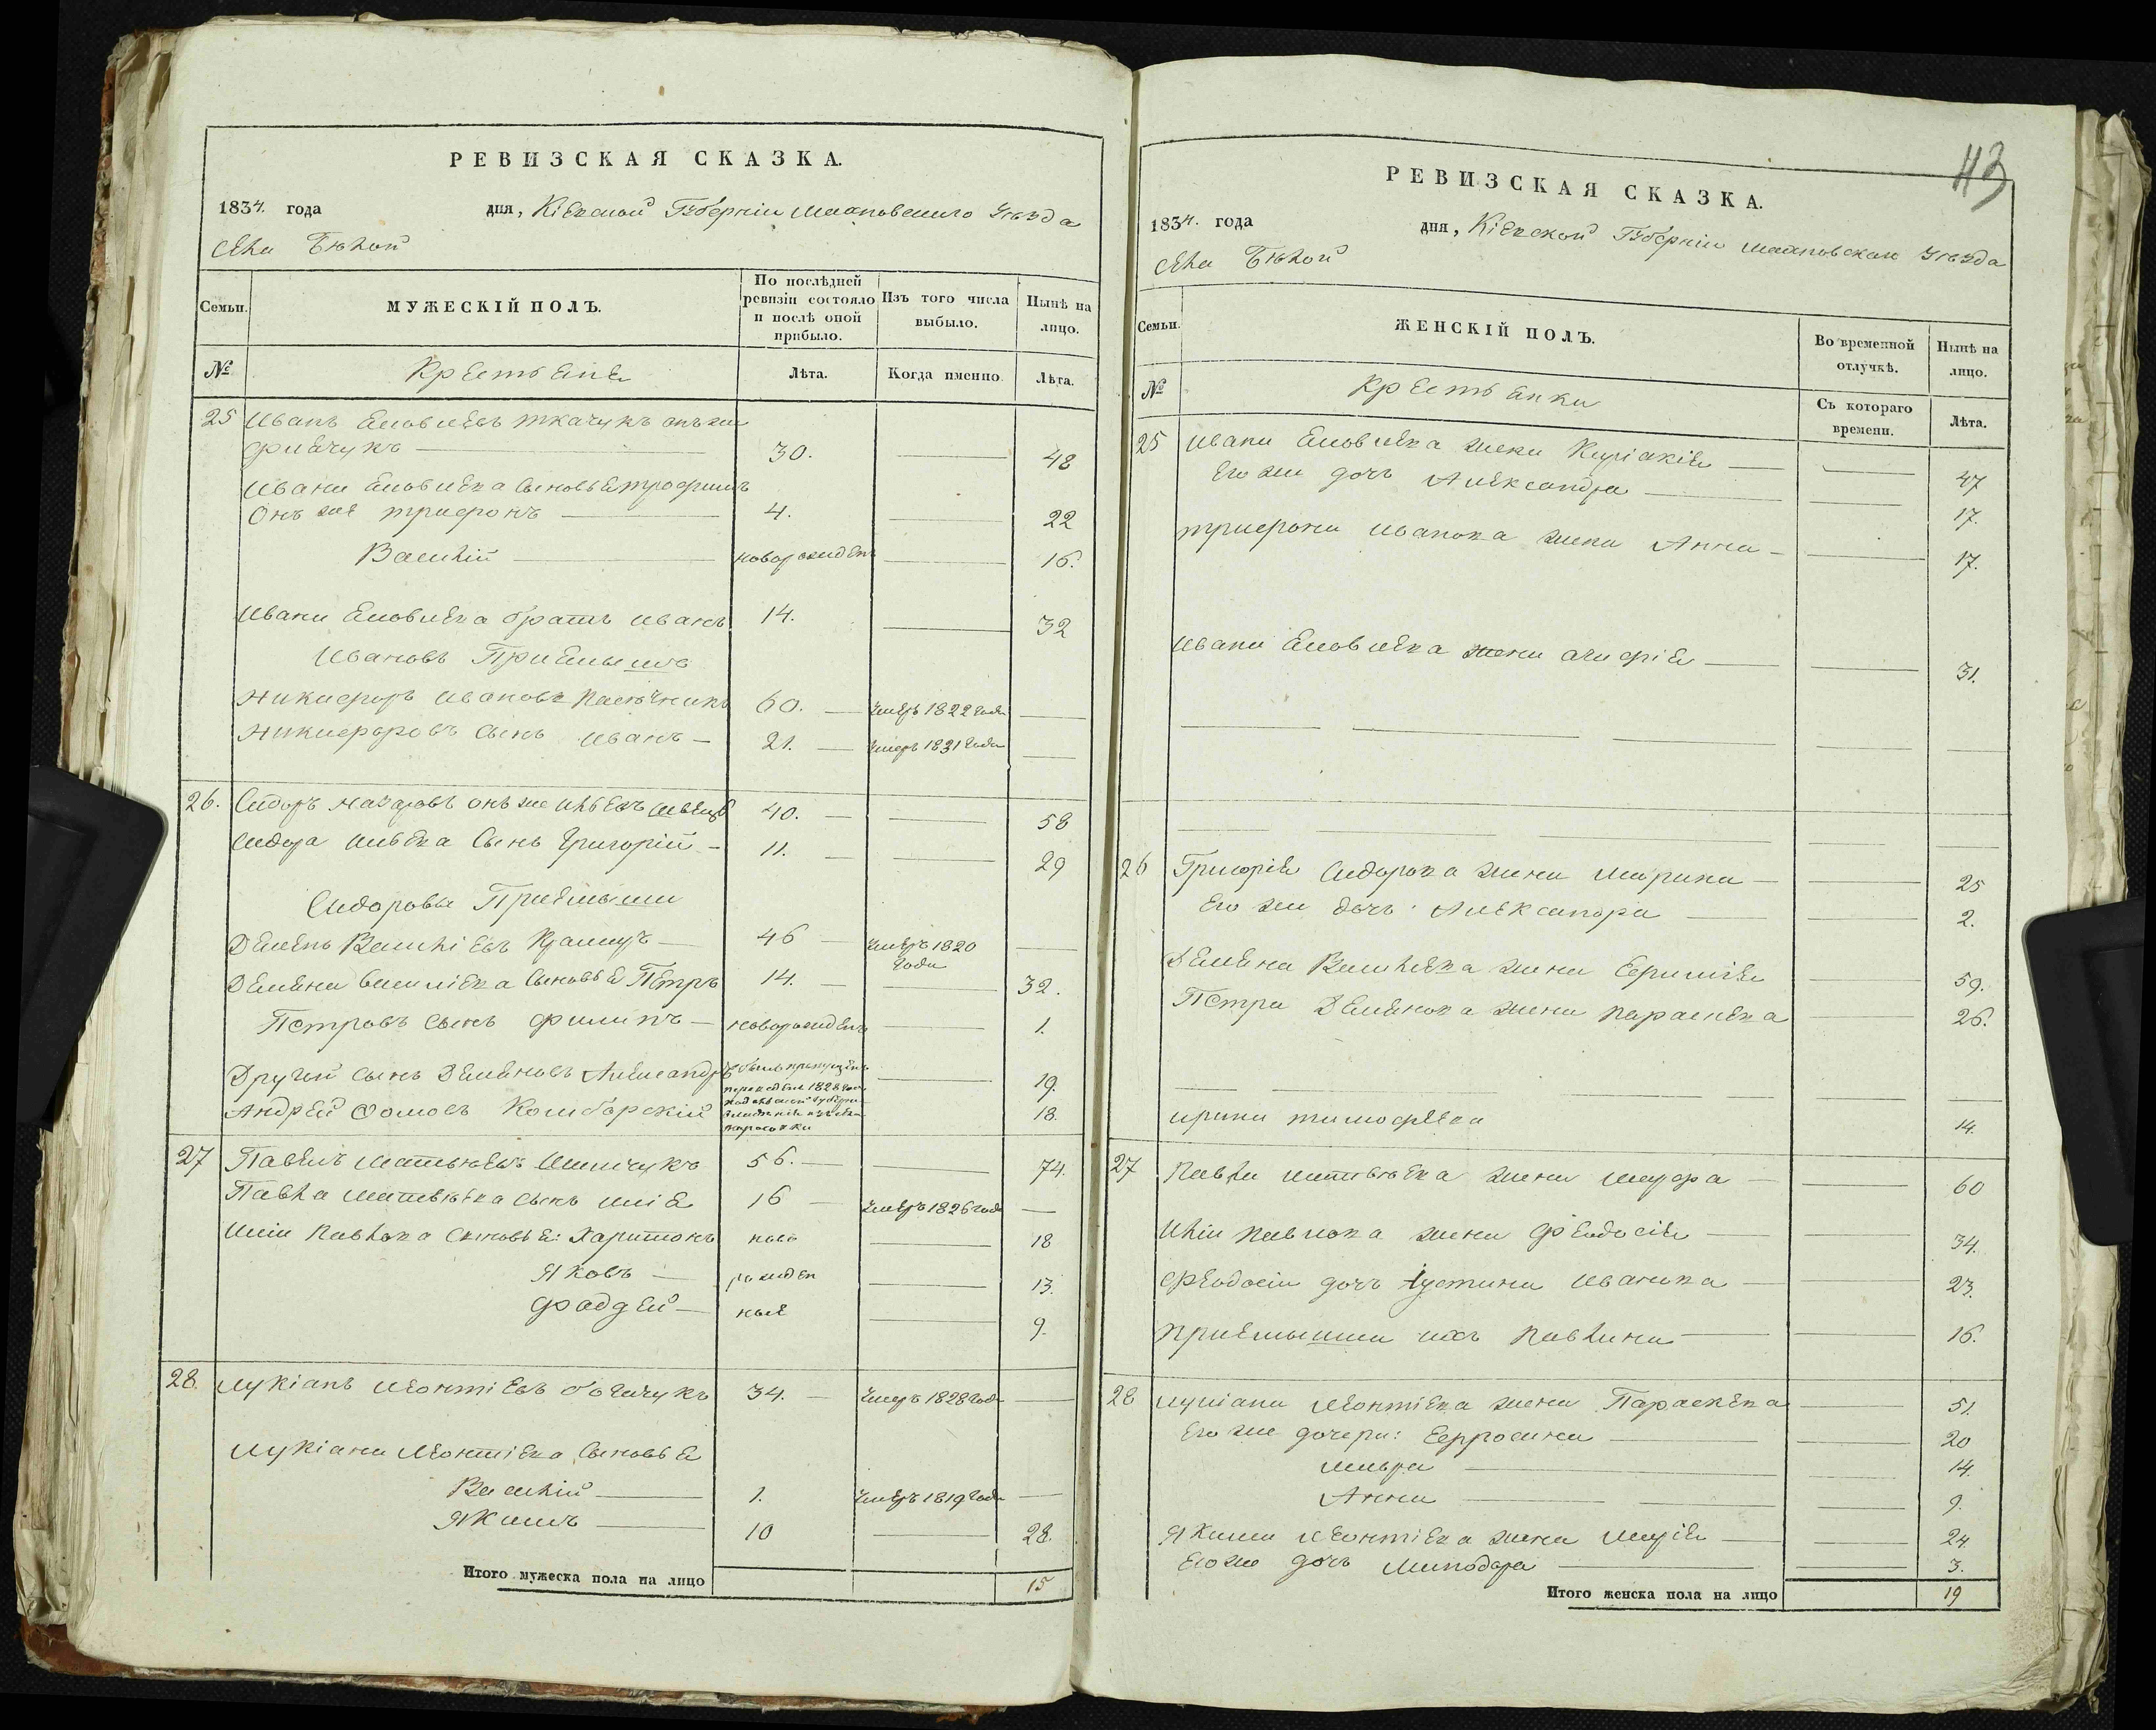 РЕВИЗСКАЯ СКАЗКА.
1834. года дня, Кіевской Губерніи Уезда
села Белой
Семьи. МУЖЕСКІЙ ПОЛЪ. По послѣдней ревизіи состояло и послѣ оной прибыло. Изъ того числа выбыло. Нынѣ на лицо.
№ Крестьяне Лѣта. Когда именно Лѣта.
25 Иванъ Ткачукъ онъже
30. 48
Ивана сыновья Трофимъ
Онъ же Трифонъ 4. 22
Василій новорожден 16.
Ивана братъ Иванъ 14. 32
Ивановъ Приемышъ
Никифоръ Ивановъ Пасечникъ 60. умеръ 1822 года
Никифоровъ сынъ Иванъ 21. умеръ 1831 года
26. Сидоръ онъ же 40. 58
Сидора сынъ Григорій 11. 29
Сидоровы Приемыши
Демянъ Василіевъ 46 умеръ 1820 года
Демяна Василіева сыновья Петръ 14. 32.
Петровъ сынъ Филипъ новорожденъ 1.
Другой сынъ Демяновъ Александръ 19.
Андрей Фомовъ 18.
27 Павелъ Матвѣевъ 56. 74.
Павла Матвѣева сынъ Илія 16 умеръ 1826 года
Иліи Павлова сыновья: Харитонъ ново 18
Яковъ рожден 13.
Фаддей ные 9.
28. Лукіанъ Леонтіевъ 34. умеръ 1828 года
Лукіана Леонтіева сыновья
Василій 1. умеръ 1819 года
Якимъ 10 28.
Итого мужеска пола на лицо 15
43
РЕВИЗСКАЯ СКАЗКА.
1834. года дня, Кіевской Губерніи Уезда
села Белой
Семьи. ЖЕНСКІЙ ПОЛЪ. Во временной отлучкѣ. Нынѣ на лицо.
№ Крестьянки Съ котораго времени. Лѣта.
25 Ивана жена Киріакія 47
Его же дочь Александра 17.
Трифона Иванова жена Анна 17.
Ивана жена 31.
26 Григорія Сидорова жена Марина 25
Его же дочь Александра 2.
Демяна Василіева жена 59.
Петра Демянова жена Параскева 26.
Ирина Тимофѣева 14.
27 Павла Матвѣева жена Марфа 60
Иліи Павлова жена Феодосія 34.
Феодосіи дочь Іустина Иванова 23.
Приемышка ихъ Павлина 16.
28 Лукіана Леонтіева жена Параскева 51.
Его же дочери: Евросина 20
Мавра 14.
Анна 9.
Якима Леонтіева жена Марія 24
Его же дочь Минодора 3.
Итого женска пола на лицо 19